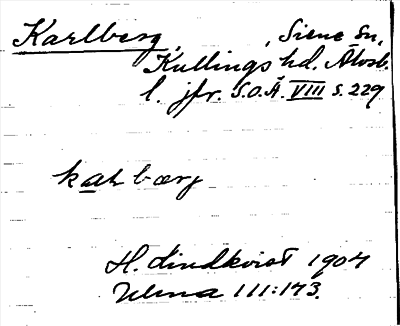 Karlberg, , Siene sn,
Kullings hd. Älvsb.
l. jfr. S.O.Ä. VIII s. 229
kaɫbærj
H. Lindkvist 1904
Ulma 111:173.